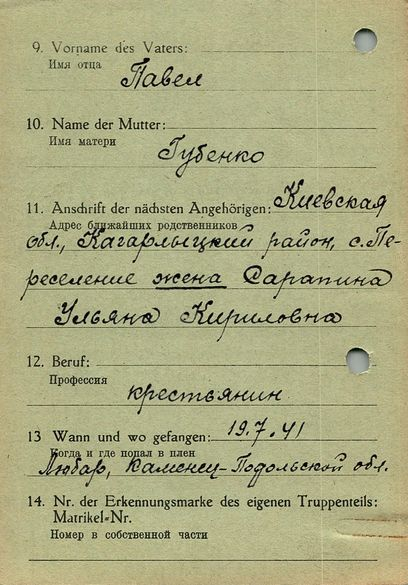 9. Vorname des Vaters:
Имя отца
Павел
10. Name der Mutter:
Имя матери
Губенко
11. Anschrift der nächsten Angehörigen: Киевская
Адрес ближайших родственников
обл., Кагарлыцкий район, с. Пе-
реселение жена Сарапина
Ульяна Кириловна
12. Beruf:
Профессия
крестьянин
13 Wann und wo gefangen: 19.7.41
Когда и где попал в плен
Любар, Каменец-Подольской обл.
14. Nr. der Erkennungsmarke des eigenen Truppenteils:
Matrikel-Nr.
Номер в собственной части